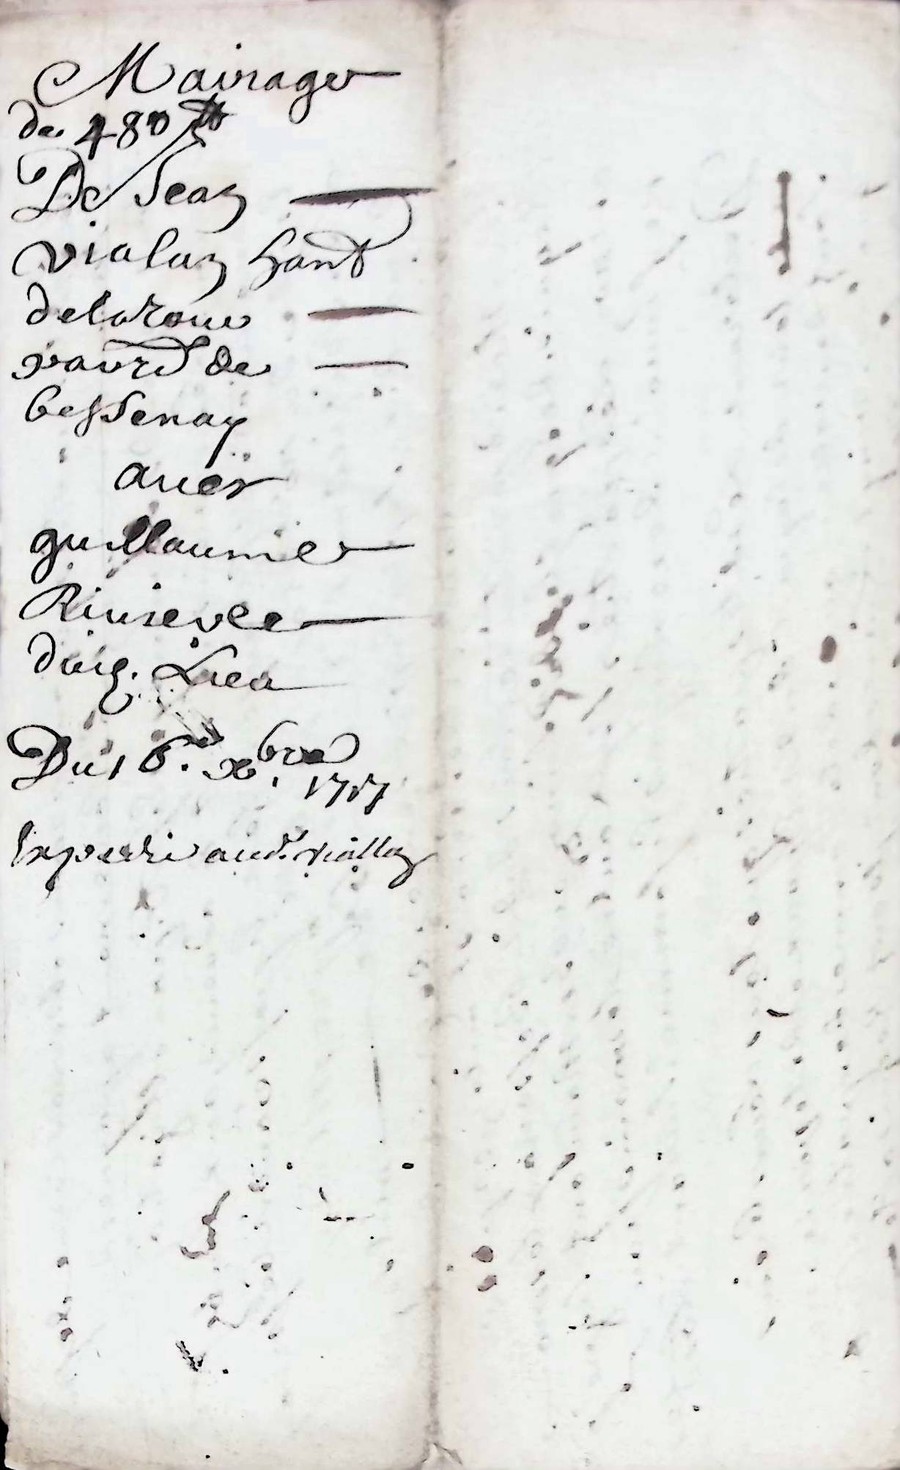 Mariage
de 480 tt
De Jean
vialon hant
delaroue
parr. de
bessenay
avec
guillaumie
Riviere
dud. Lieu
Du 16e xbre
1717
Expedié aud. viallon